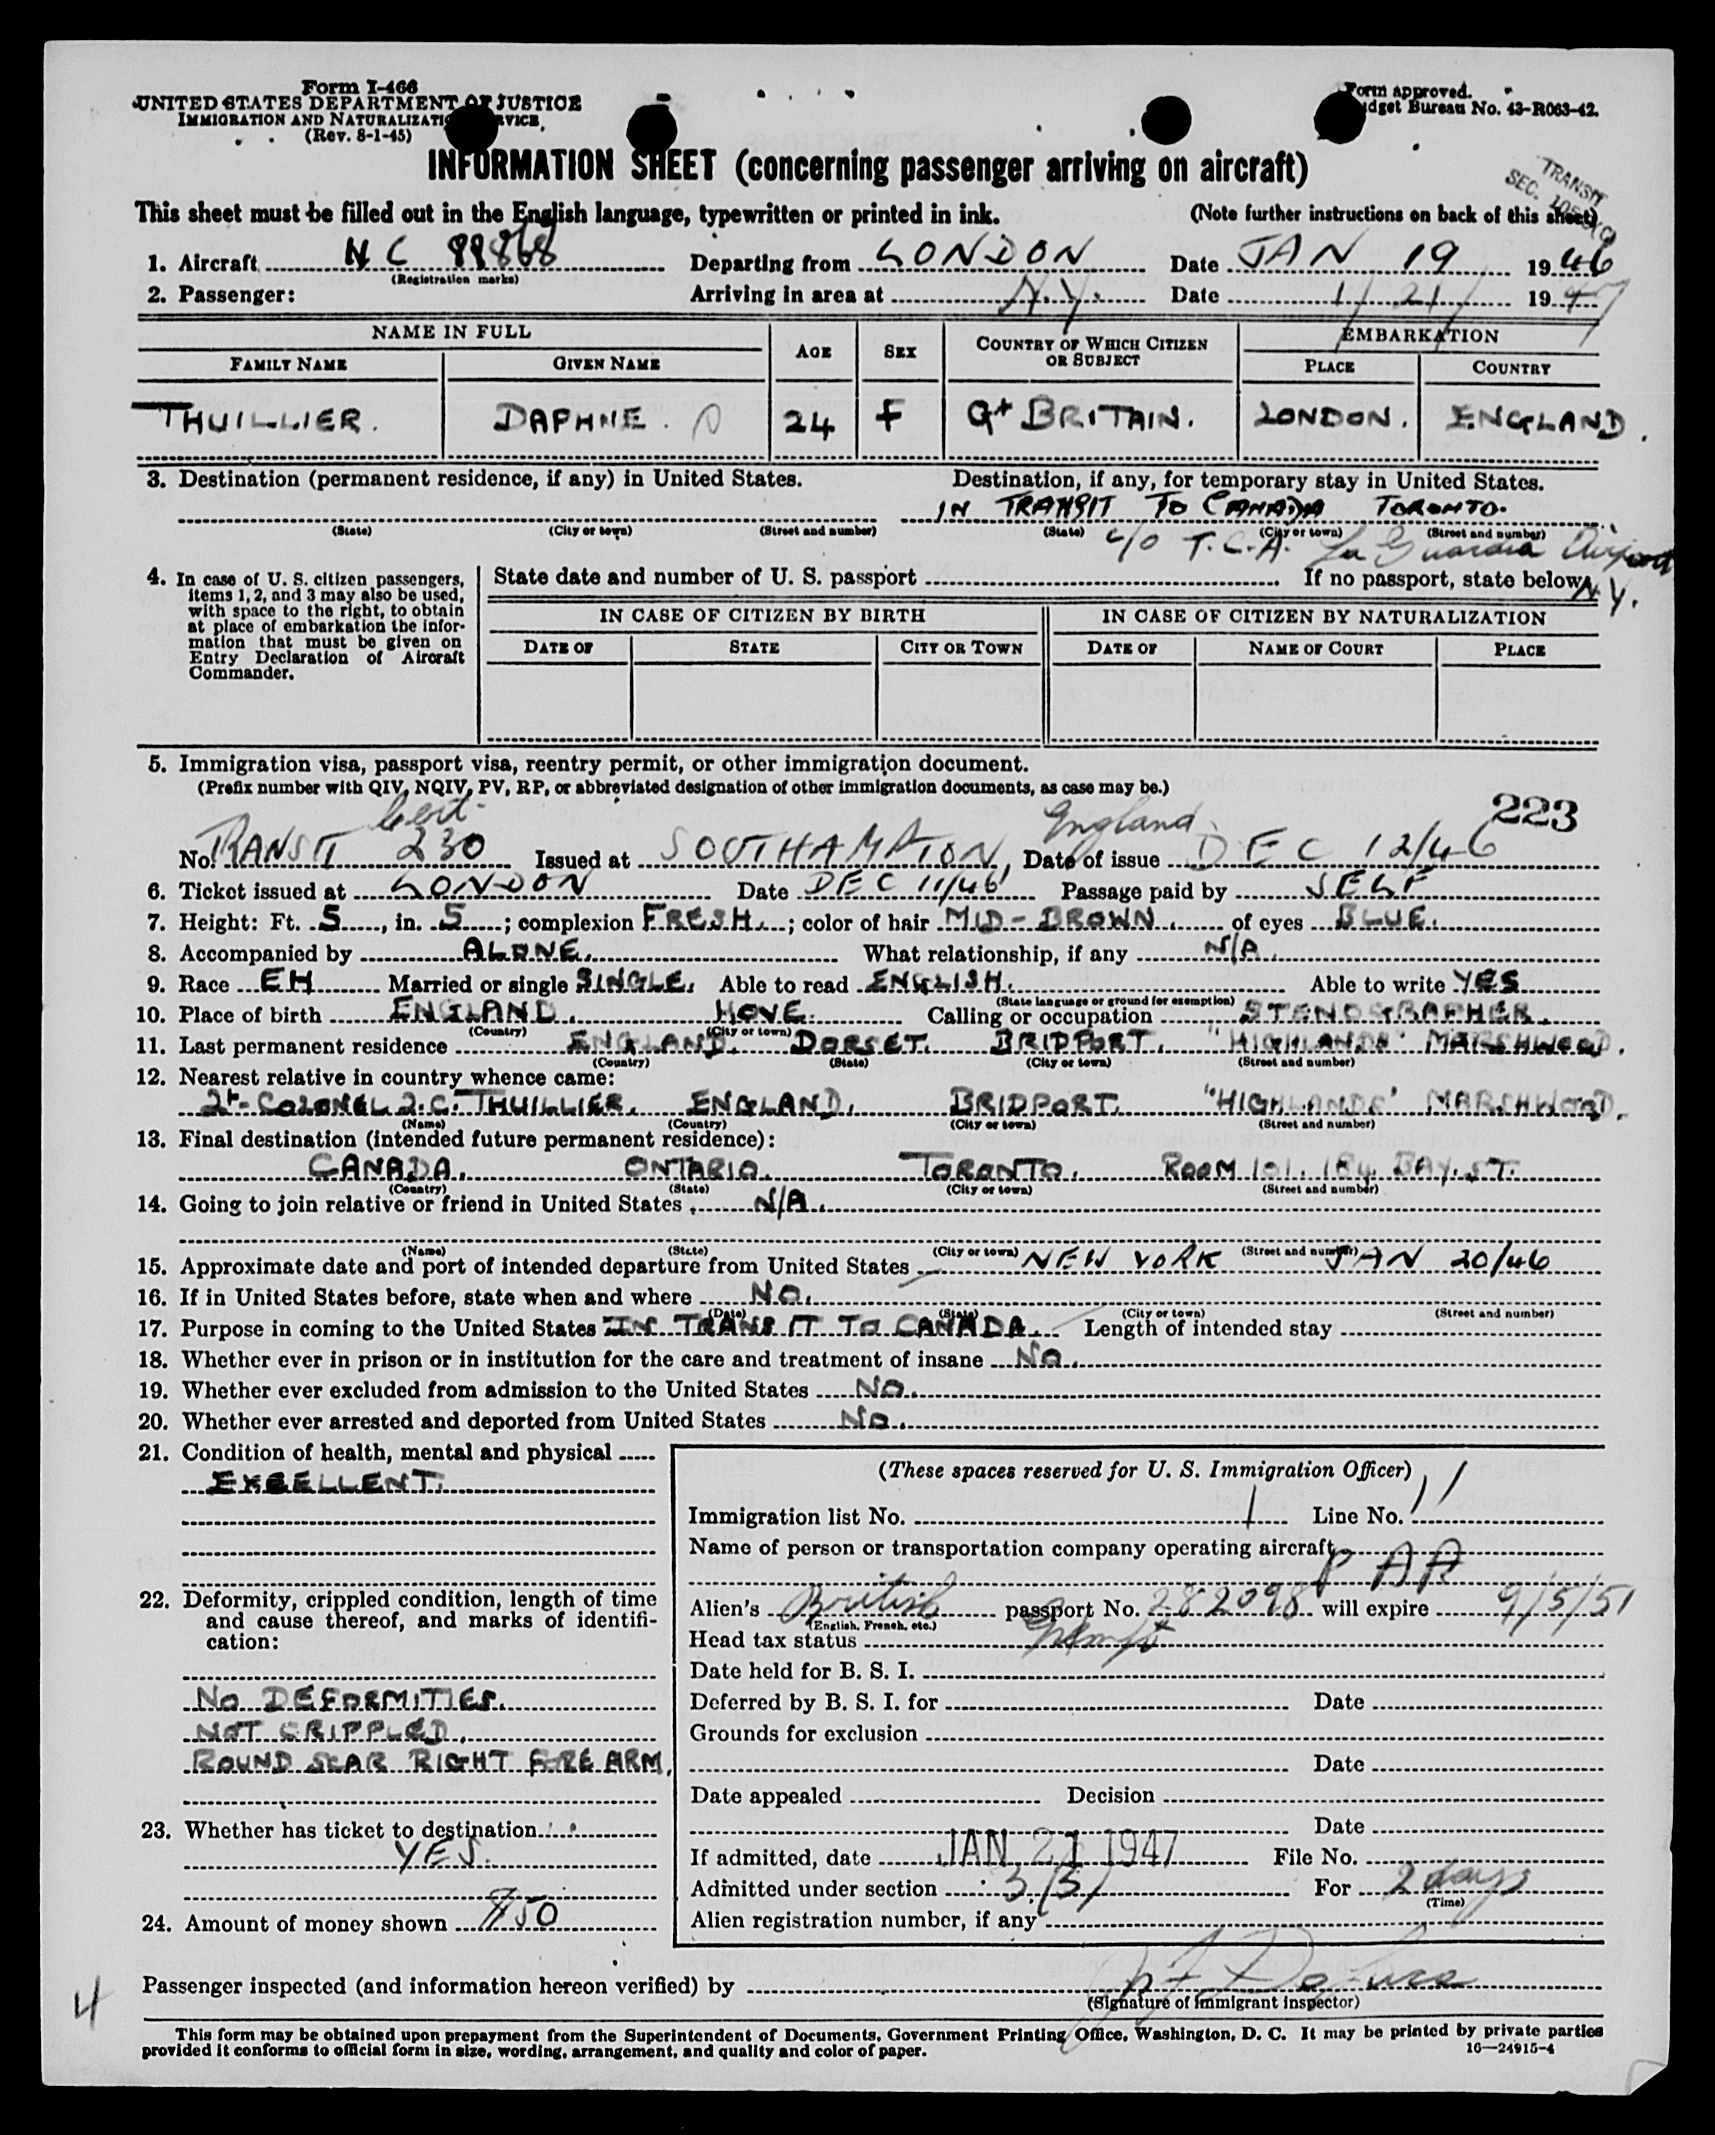 Form I-466
UNITED STATES DEPARTMENT OF JUSTICE
IMMIGRATION AND NATURALIZATION SERVICE
(Rev. 8-1-45)
Form approved.
Budget Bureau No. 43-R063-42.
INFORMATION SHEET (concerning passenger arriving on aircraft)
TRANSIT
SEC.
This sheet must be filled out in the English language, typewritten or printed in ink. (Note further instructions on back of this sheet)
1. Aircraft NC 88868 Departing from LONDON Date JAN 19 1946
(Registration marks)
2. Passenger: Arriving in area at N.Y. Date 1/21/ 1947
NAME IN FULL AGE SEX COUNTRY OF WHICH CITIZEN OR SUBJECT EMBARKATION
FAMILY NAME GIVEN NAME PLACE COUNTRY
THUILLIER. DAPHNE. 24 F Gt BRITAIN. LONDON. ENGLAND.
3. Destination (permanent residence, if any) in United States. Destination, if any, for temporary stay in United States.
IN TRANSIT TO CANADA TORONTO.
(State) (City or town) (Street and number) (State) (City or town) (Street and number)
c/o T.C.A. La Guardia Airport
N.Y.
4. In case of U. S. citizen passengers, items 1, 2, and 3 may also be used, with space to the right, to obtain at place of embarkation the information that must be given on Entry Declaration of Aircraft Commander.
State date and number of U. S. passport If no passport, state below
IN CASE OF CITIZEN BY BIRTH IN CASE OF CITIZEN BY NATURALIZATION
DATE OF STATE CITY OR TOWN DATE OF NAME OF COURT PLACE
5. Immigration visa, passport visa, reentry permit, or other immigration document.
(Prefix number with QIV, NQIV, PV, RP, or abbreviated designation of other immigration documents, as case may be.)
223
Cert England
No. TRANSIT 230 Issued at SOUTHAMPTON, Date of issue DEC 12/46
6. Ticket issued at LONDON Date DEC 11/46 Passage paid by SELF
7. Height: Ft. 5, in. 5; complexion FRESH.; color of hair MID-BROWN. of eyes BLUE.
8. Accompanied by ALONE. What relationship, if any N/A.
9. Race EH Married or single SINGLE. Able to read ENGLISH. Able to write YES
(State language or ground for exemption)
10. Place of birth ENGLAND. HOVE. Calling or occupation STENOGRAPHER.
(Country) (City or town)
11. Last permanent residence ENGLAND. DORSET. BRIDPORT. "HIGHLANDS" MARSHWOOD.
(Country) (State) (City or town) (Street and number)
12. Nearest relative in country whence came:
Lt-COLONEL L.C. THUILLIER. ENGLAND. BRIDPORT. "HIGHLANDS" MARSHWOOD.
(Name) (Country) (City or town) (Street and number)
13. Final destination (intended future permanent residence):
CANADA. ONTARIO. TORONTO. ROOM 101. 184 BAY. ST.
(Country) (State) (City or town) (Street and number)
14. Going to join relative or friend in United States N/A.
(Name) (State) (City or town) (Street and number)
15. Approximate date and port of intended departure from United States NEW YORK JAN 20/46
16. If in United States before, state when and where NO.
(Date) (State) (City or town) (Street and number)
17. Purpose in coming to the United States IN TRANSIT TO CANADA. Length of intended stay
18. Whether ever in prison or in institution for the care and treatment of insane NO.
19. Whether ever excluded from admission to the United States NO.
20. Whether ever arrested and deported from United States NO.
21. Condition of health, mental and physical
EXCELLENT.
22. Deformity, crippled condition, length of time and cause thereof, and marks of identification:
NO DEFORMITIES.
NOT CRIPPLED.
ROUND SCAR RIGHT FORE ARM.
23. Whether has ticket to destination
YES.
24. Amount of money shown $50
(These spaces reserved for U. S. Immigration Officer)
Immigration list No. 1 Line No. 11
Name of person or transportation company operating aircraft
P A A
Alien's British passport No. 282098 will expire 9/5/51
(English, French, etc.)
Head tax status Exempt
Date held for B. S. I.
Deferred by B. S. I. for Date
Grounds for exclusion
Date
Date appealed Decision
Date
If admitted, date JAN 21 1947 File No.
Admitted under section 3(3) For 2 days
(Time)
Alien registration number, if any
Passenger inspected (and information hereon verified) by
(Signature of immigrant inspector)
4
This form may be obtained upon prepayment from the Superintendent of Documents, Government Printing Office, Washington, D. C. It may be printed by private parties
provided it conforms to official form in size, wording, arrangement, and quality and color of paper.
16—24915-4